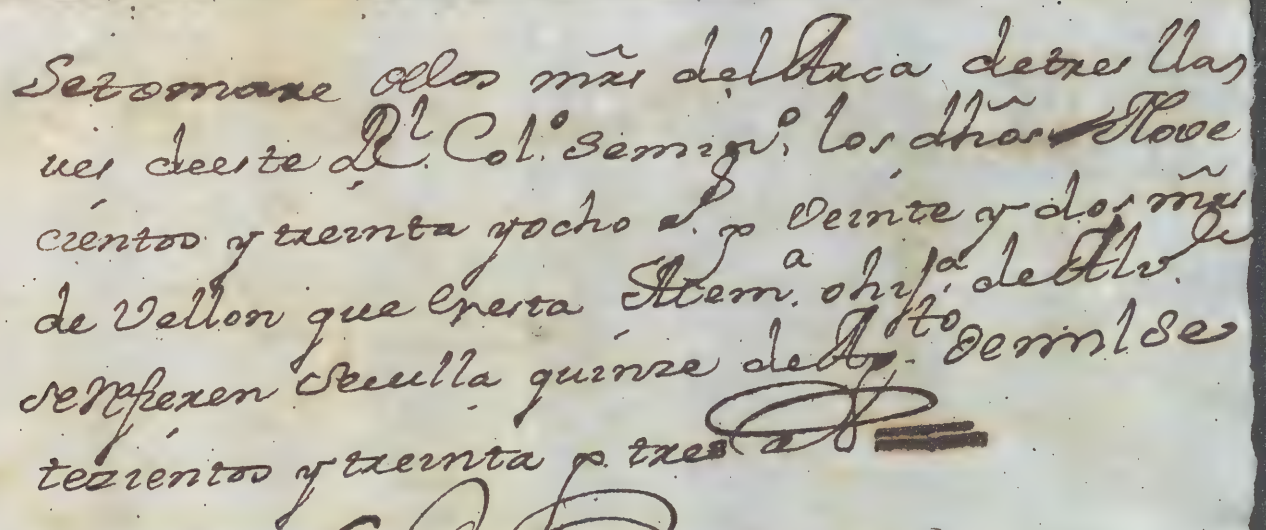 Se tomare delos mr̃s del Arca detres lla
ues deeste Rl. Col.º Semin.º los dhõs Nove
cientos y treinta yocho rs. p veinte y dos mr̃s
de Vellon que en esta Mem.a o hij.a de Alv.
se refieren Seuilla quinze de Ag.to de mil Se
tezientos y treinta p tres a